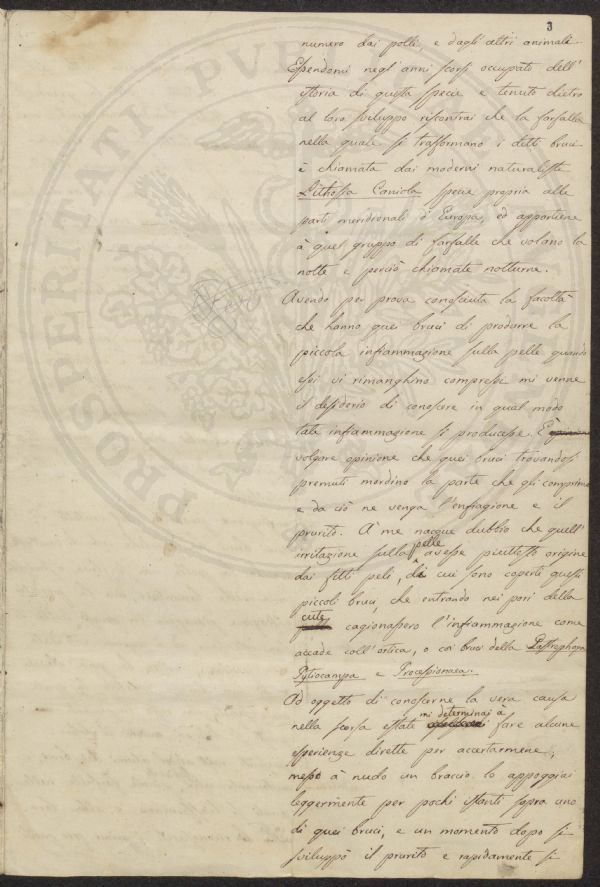 3
numero dai polli e dagli altri animali.
Essendomi negl'anni scorsi occupato dell'
istoria di questa specie e tenuto dietro
al loro sviluppo riscontrai che la farfalla
nella quale si trasformano i detti bruci
è chiamata dai moderni naturalisti
Lithosia Caniola specie propria alle
parti meridionali d'Europa, ed appartiene
à quel gruppo di farfalle che volano la
notte e perciò chiamate notturne.
Avendo per prova conosciuta la facoltà
che hanno quei bruci di produrre la
piccola infiammazione sulla pelle quando
essi vi rimanghino compressi mi venne
il desiderio di conoscere in qual modo
tale infiammazione si producesse. È
volgare opinione che quei bruci trovandosi
premuti mordino la parte che gli comprime
e da ciò ne venga l'enfiagione e il
prurito. A me nacque dubbio che quell'
irritazione sulla pelle avesse piuttosto origine
dai fitti peli, di cui sono coperti questi
piccoli bruci, che entrando nei pori della
cute cagionassero l'infiammazione come
accade coll'ortica, o coi bruci della
Pytiocampa e Processionaea.
Ad oggetto di conoscerne la vera causa
nella scorsa estate mi determinai à fare alcune
esperienze dirette per accertarmene;
messo à nudo un braccio lo appoggiai
leggermente per pochi istanti sopra uno
di quei bruci, e un momento dopo si
sviluppò il prurito e rapidamente si